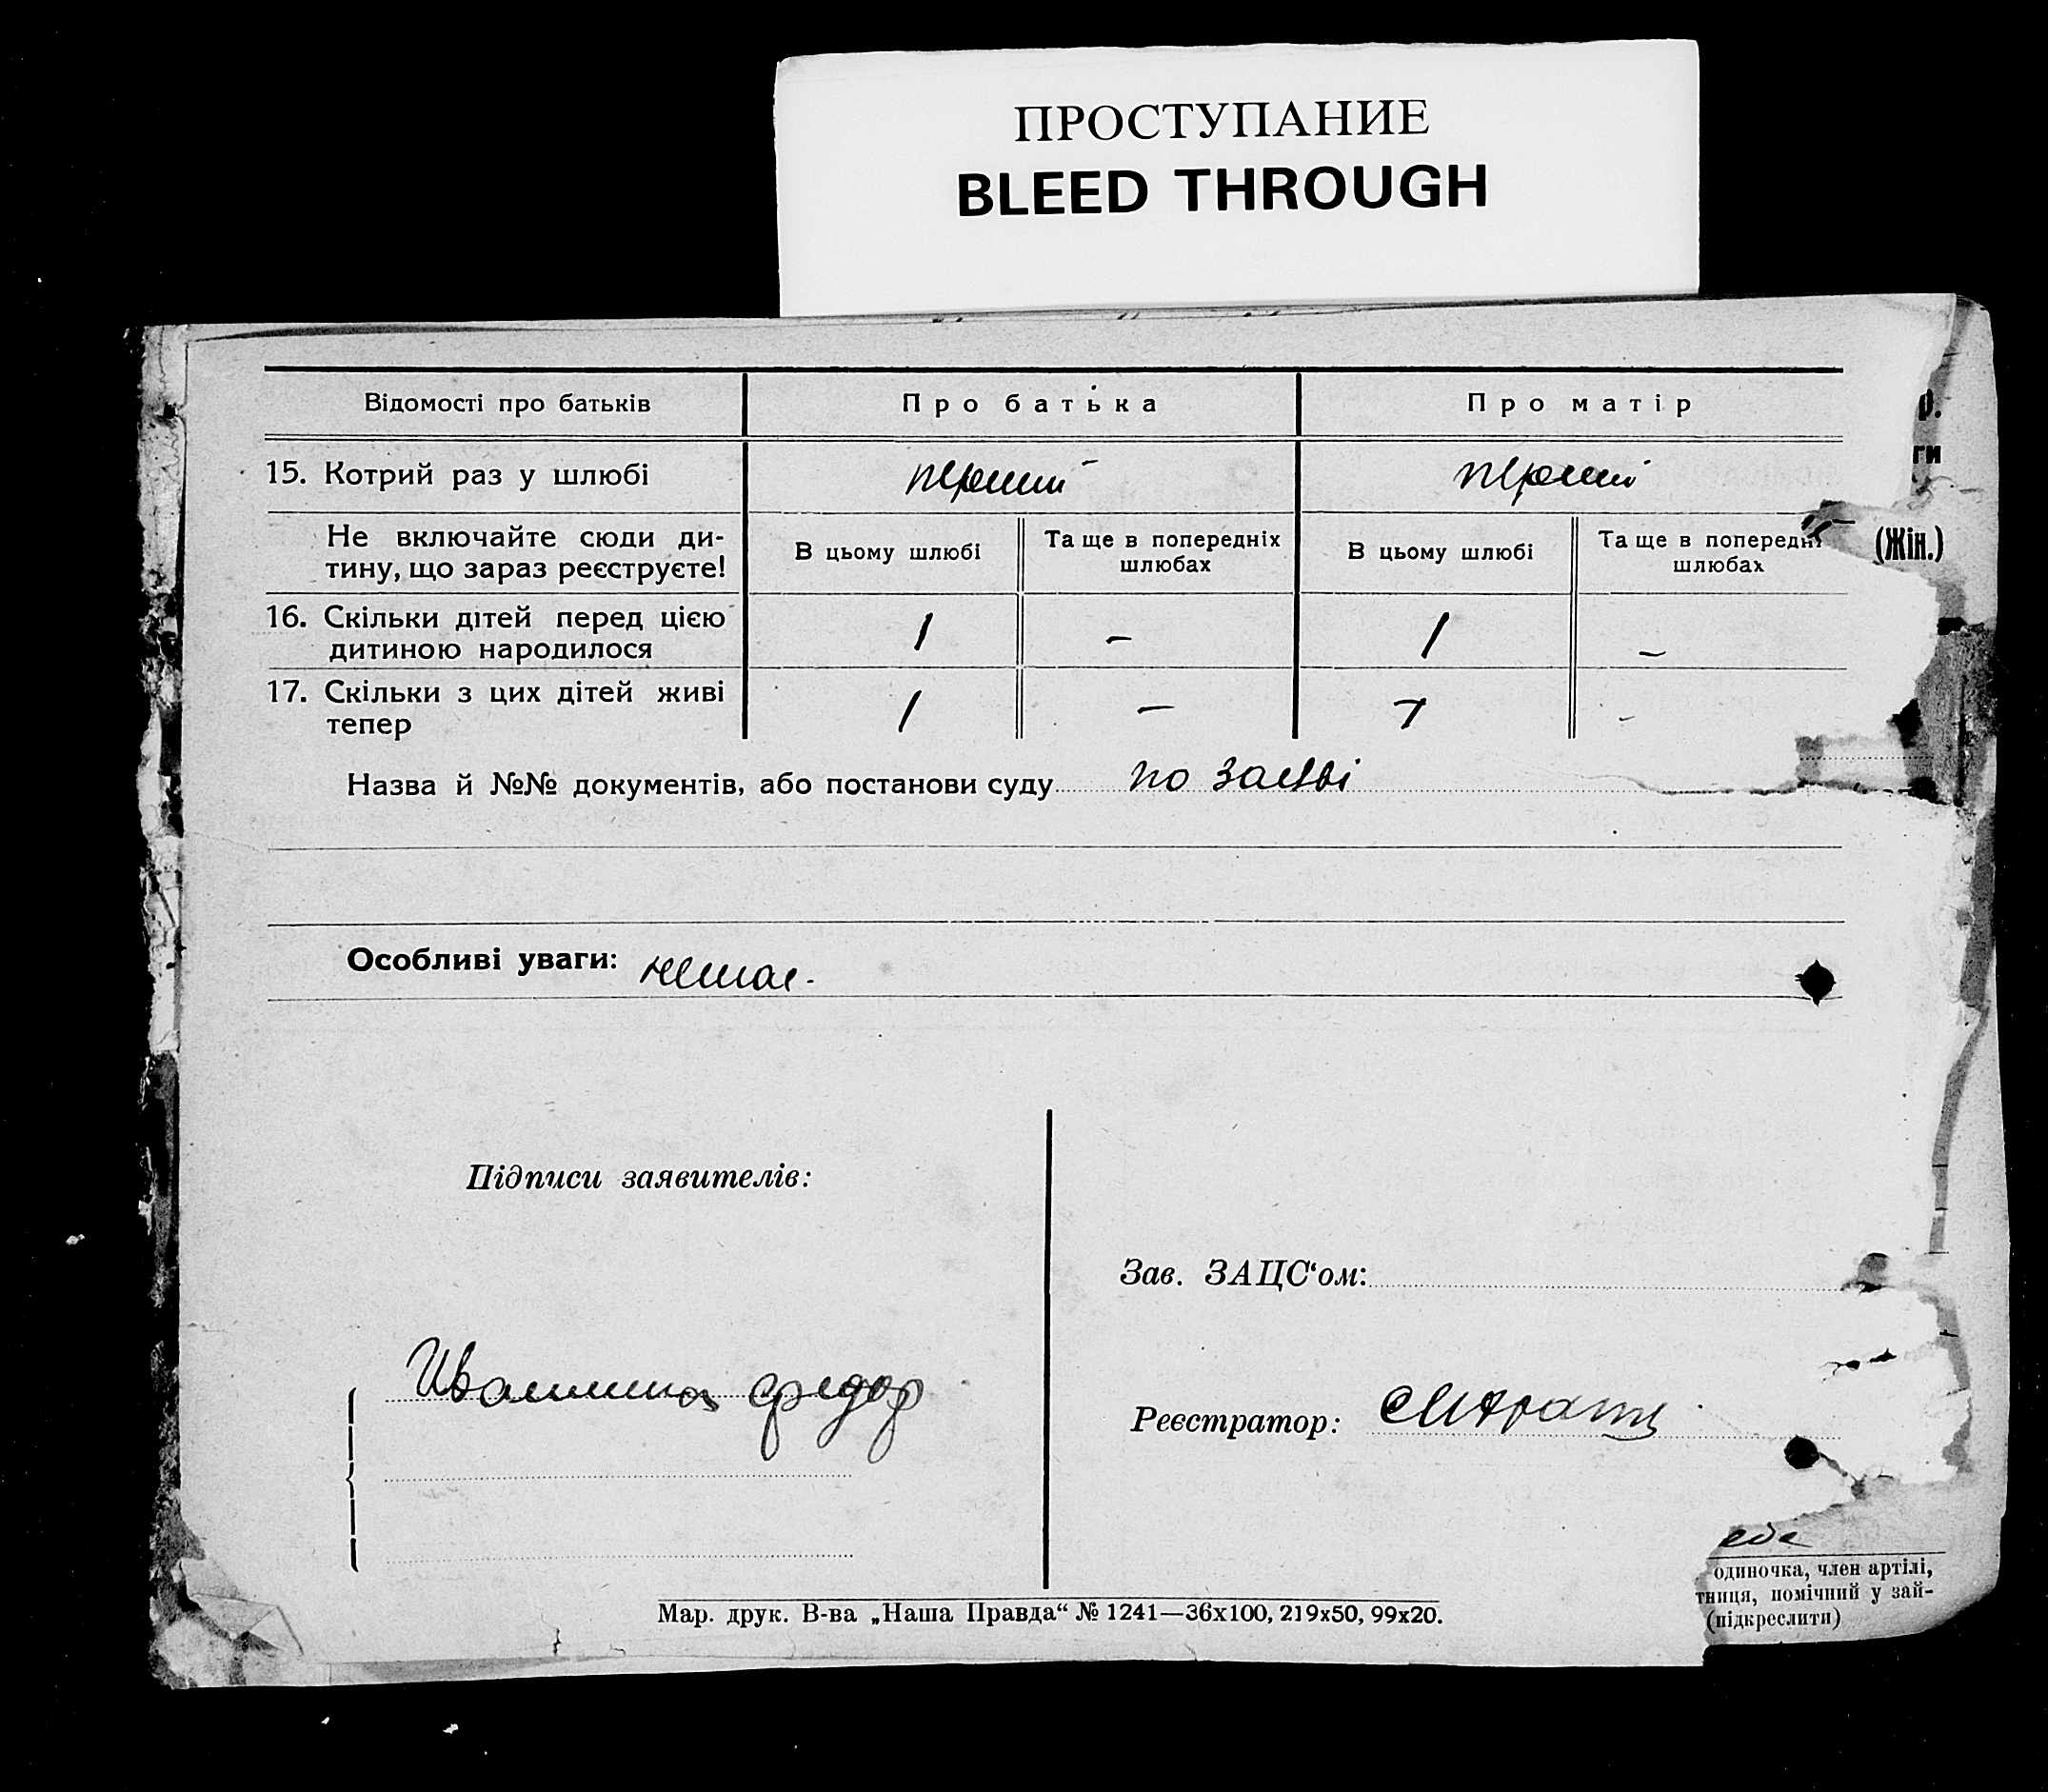 ПРОСТУПАНИЕ
BLEED THROUGH
Відомості про батьків Про батька Про матір
15. Котрий раз у шлюбі перший перший
Не включайте сюди ди-
тину, що зараз реєструєте!
В цьому шлюбі Та ще в попередніх шлюбах В цьому шлюбі Та ще в попередні шлюбах
(Жін.)
16. Скільки дітей перед цією
дитиною народилося 1 – 1 –
17. Скільки з цих дітей живі
тепер 1 – 1 -
Назва й №№ документів, або постанови суду по заяві
Особливі уваги: немає.
Підписи заявителів:
Зав. ЗАЦС'ом:
Федор
Реєстратор:
одиночка, член артілі,
тниця, помічний у зай-
(підкреслити)
Мар. друк. В-ва „Наша Правда“ № 1241—36х100, 219х50, 99х20.